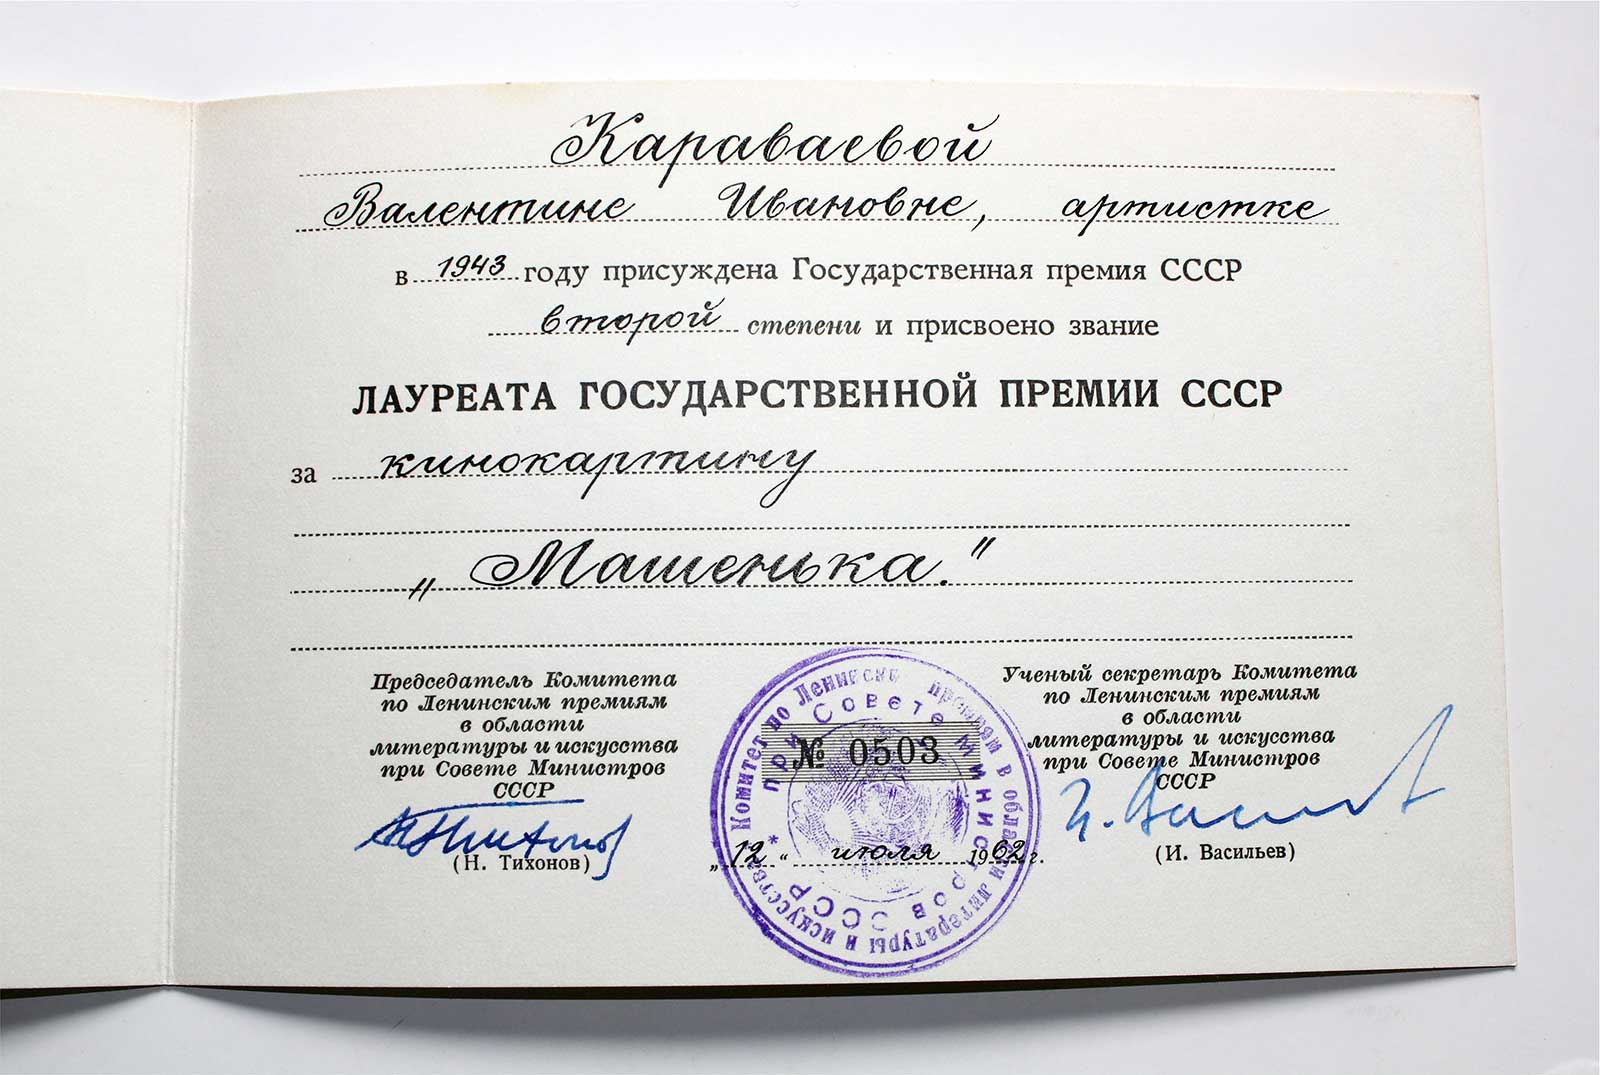 Караваевой
Валентине Ивановне, артистке
в 1943 году присуждена Государственная премия СССР
второй степени и присвоено звание
ЛАУРЕАТА ГОСУДАРСТВЕННОЙ ПРЕМИИ СССР
за кинокартину
„Машенька."
Председатель Комитета
по Ленинским премиям
в области
литературы и искусства
при Совете Министров
СССР
Н Тихонов
(Н. Тихонов)
Комитет по Ленински премиям в области литературы и искусства *
при Совете Министров СССР
№ 0503
„12" июля 1962 г.
Ученый секретарь Комитета
по Ленинским премиям
в области
литературы и искусства
при Совете Министров
СССР
(И. Васильев)